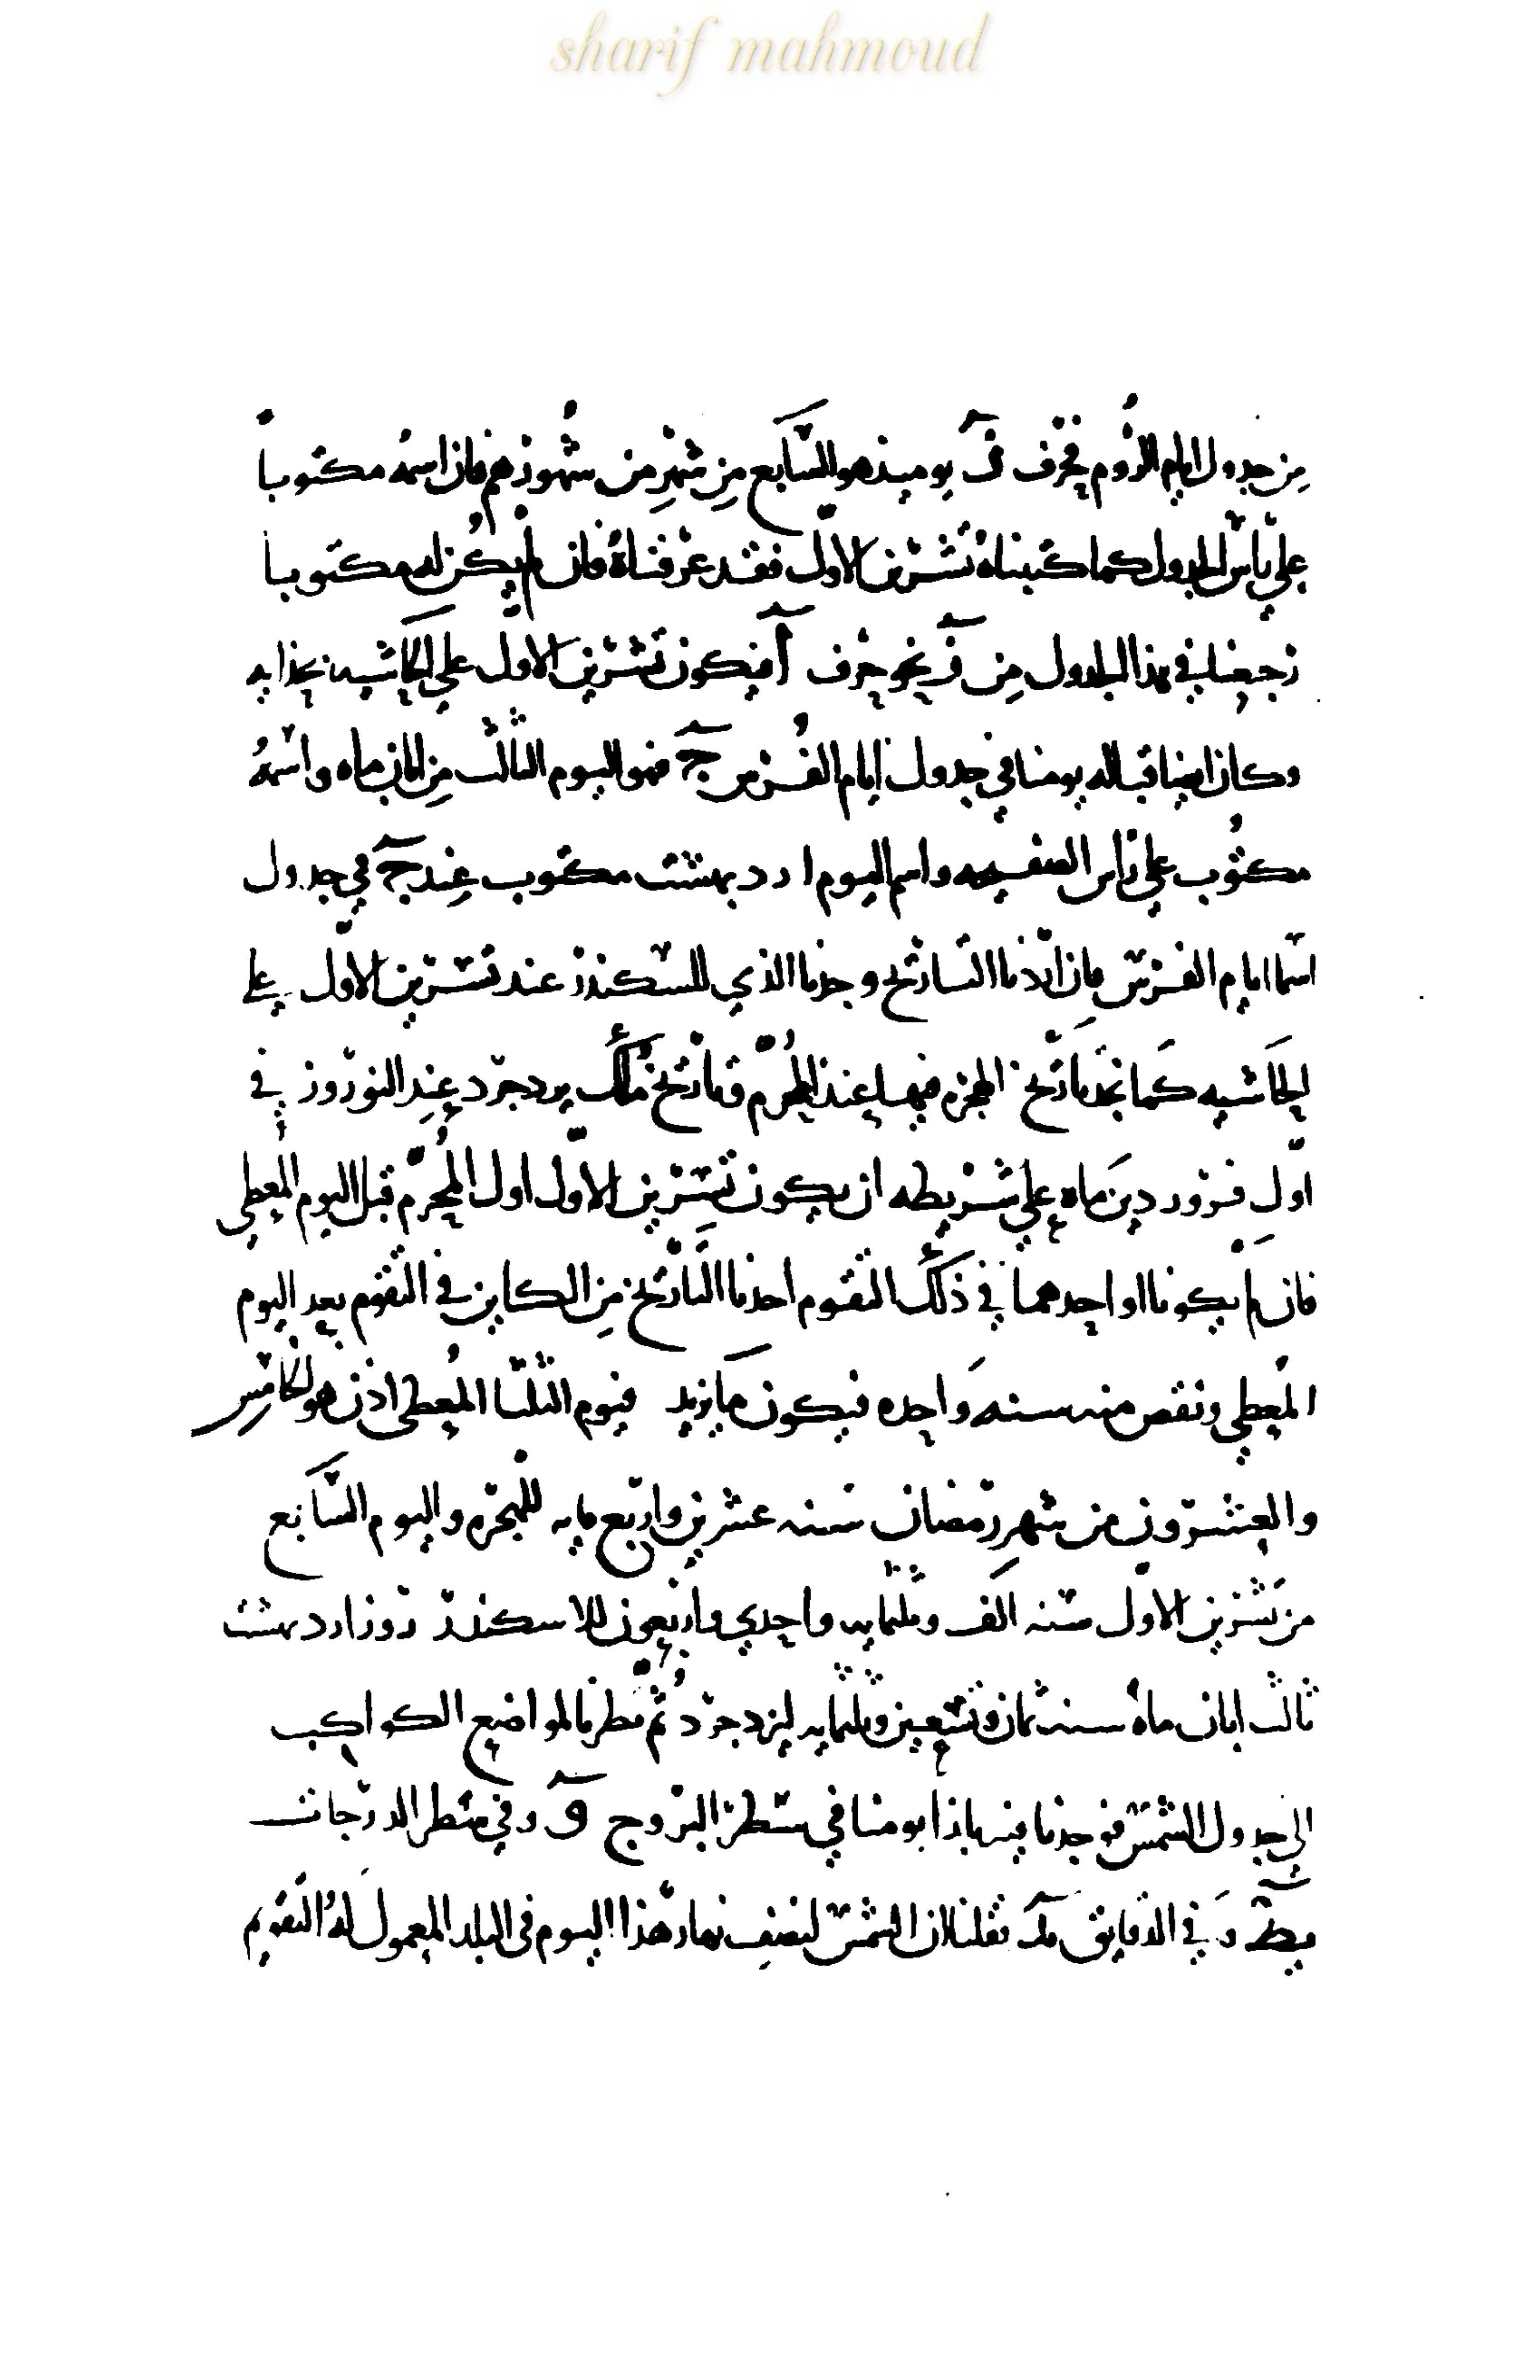 sharif mahmoud
من جدول ايام الروم فحرف ز يوميذ هو السابع من شهر من شهورهم فان اسمه مكتوبا
على راس الجدول كما كتبناه تشرين الاول فقد عرفناه فان لم يكن له مكتوبا
رجعنا في هذا الجدول من ز نحو حرف آ فيكون تشرين الاول على الحاشيه بحذايه
وكان ايضا قباله يومنا في جدول ايام الفرس ج فهو اليوم الثالث من ابان ماه واسمه
مكتوب على راس الصفيحه واسم اليوم اردبهشت مكتوب عند ج في جدول
اسما ايام الفرس فان اردنا التاريخ وجدنا الذي للسكندر عند تشرين الاول على
الحاشيه كما نجد تاريخ الهجره فيها عند المحرم وتاريخ ملك يزدجرد عند النوروز في
اول فروردين ماه على شريطه ان يكون تشرين الاول اول المحرم قبل اليوم المعطى
فان لم يكونا او احدهما في ذلك التقويم اخذنا التاريخ من الكاين في التقويم بعد اليوم
المعطى ونقص منه سنه واحده فيكون ما يزيد فيوم الثلثا المعطى اذن هو الخامس
والعشرون من شهر رمضان سنه عشرين واربع مايه للهجره واليوم السابع
من تشرين الاول سنه الف وثلثمايه واحدي واربعون للاسكندر روز اردبهشت
ثالث ابان ماه سنه ثمان وتسعين وثلثمايه ليزدجرد ثم نظرنا لمواضع الكواكب
الى جدول الشمس فوجدنا فيه بازا يومنا في سطر البروج و وفي سطر الدرجات
يط وفي الدقايق مد فقلنا ان الشمس لنصف نهار هذا اليوم في البلد المعمول له التقويم